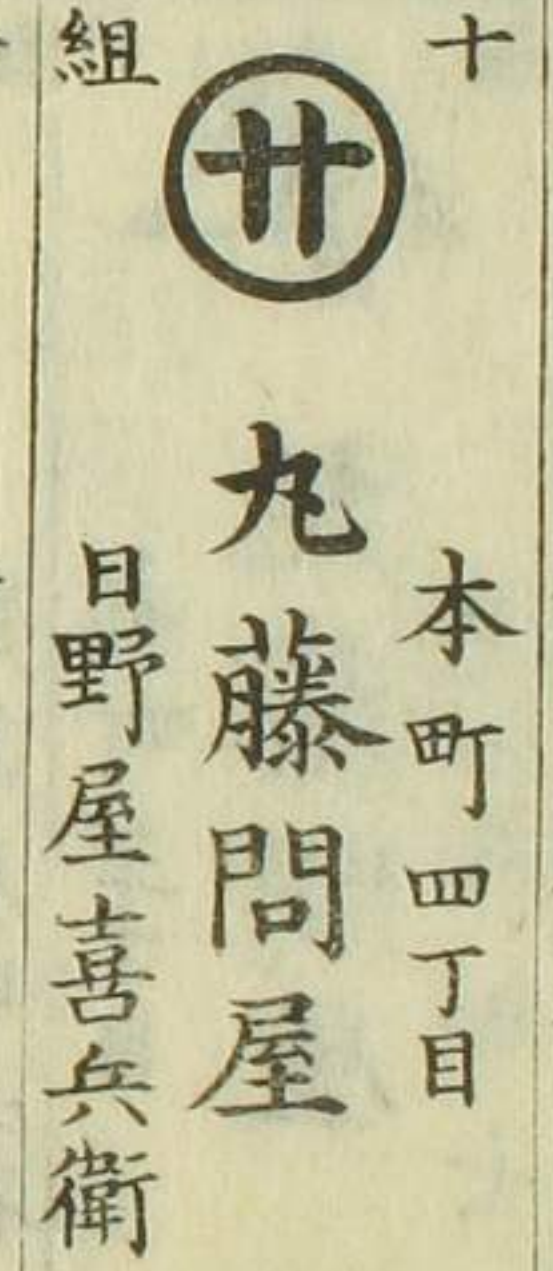 十組
廾
本町四丁目
丸藤問屋
日野屋喜兵衛